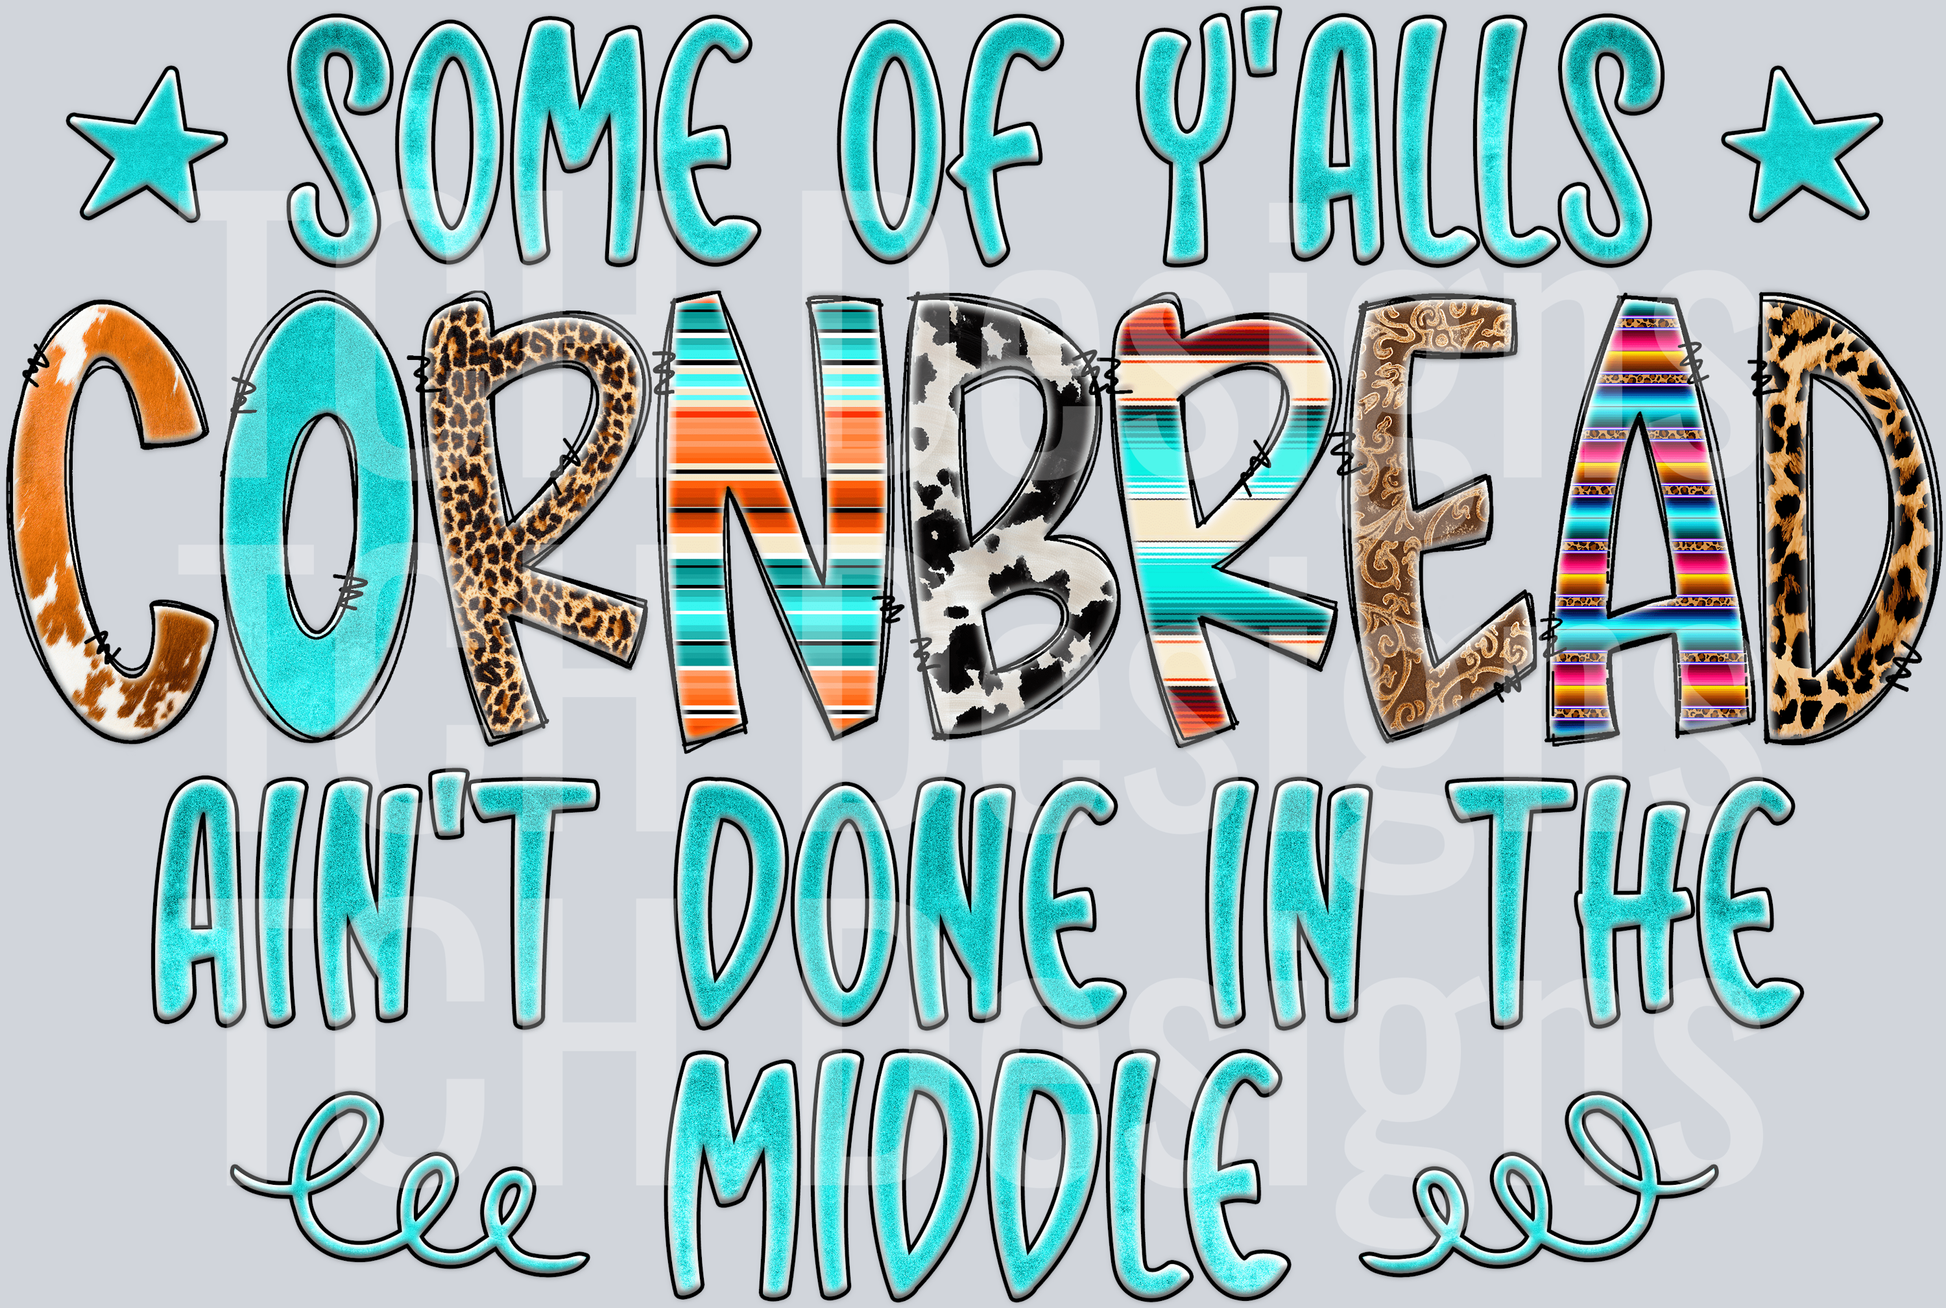 SOME OF Y'ALLS
CORNBREAD
AIN'T DONE IN THE
MIDDLE
TCH Designs
TCH Designs
TCH Designs